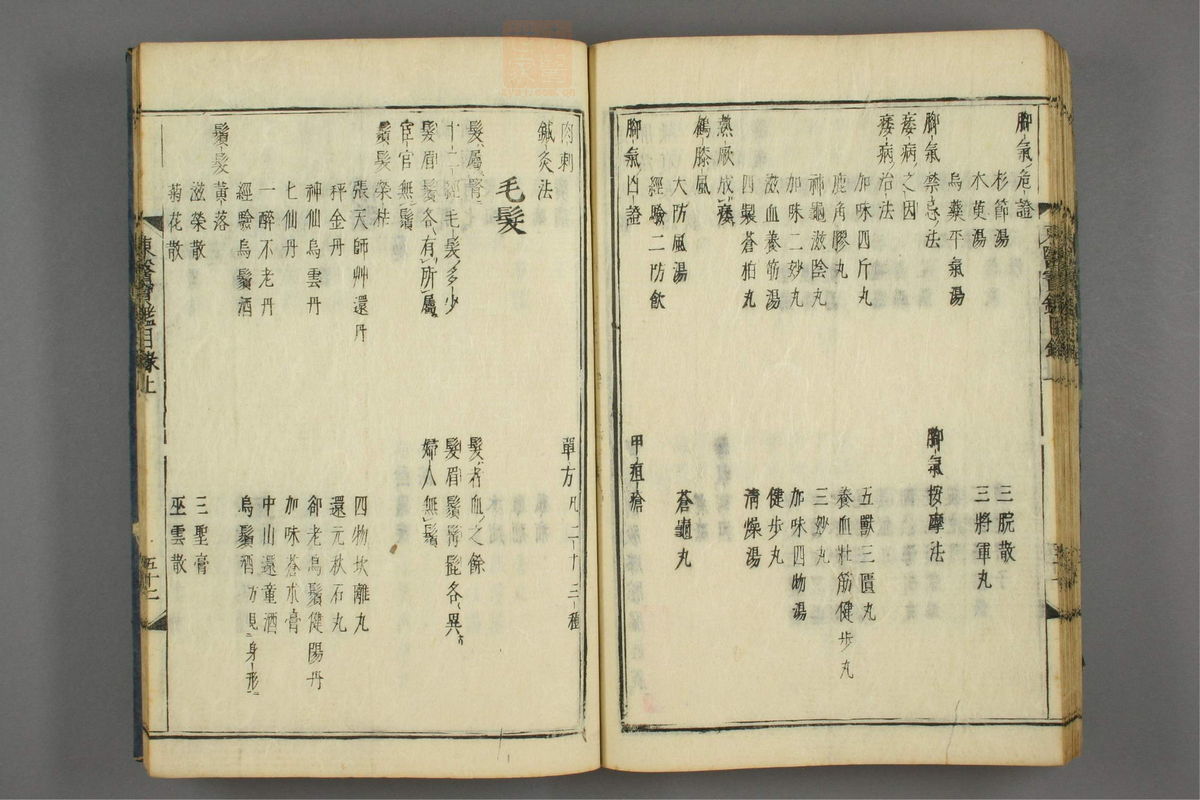 腳氣危證
杉節湯
三脘散
木萸湯
三將軍丸
烏藥平氣湯
腳氣禁忌法
腳氣按摩法
痿病之因
痿病治法
加味四斤丸
五獸三匱丸
鹿角膠丸
養血壯筋健步丸
神龜滋陰丸
三妙丸
加味二妙丸
加味四物湯
滋血養筋湯
健步丸
四製蒼柏丸
清燥湯
熱厥成痿
鶴膝風
大防風湯
蒼龜丸
經驗二防飲
腳氣凶證
甲疽瘡
肉刺
單方凡二十三種
鍼灸法
毛髮
髮屬腎
髮者血之餘
十二經毛髮多少
髮眉鬚髯髭各異
髮眉鬚各有所屬
婦人無鬚
宦官無鬚
鬚髮榮枯
張天師艸還丹
四物坎離丸
秤金丹
還元秋石丸
神仙烏雲丹
卻老烏鬚健陽丹
七仙丹
加味蒼朮膏
一醉不老丹
中山還童酒
經驗烏鬚酒
烏鬚酒方見身形
鬚髮黃落
滋榮散
三聖膏
菊花散
巫雲散
東醫寶鑑目錄上
五十二